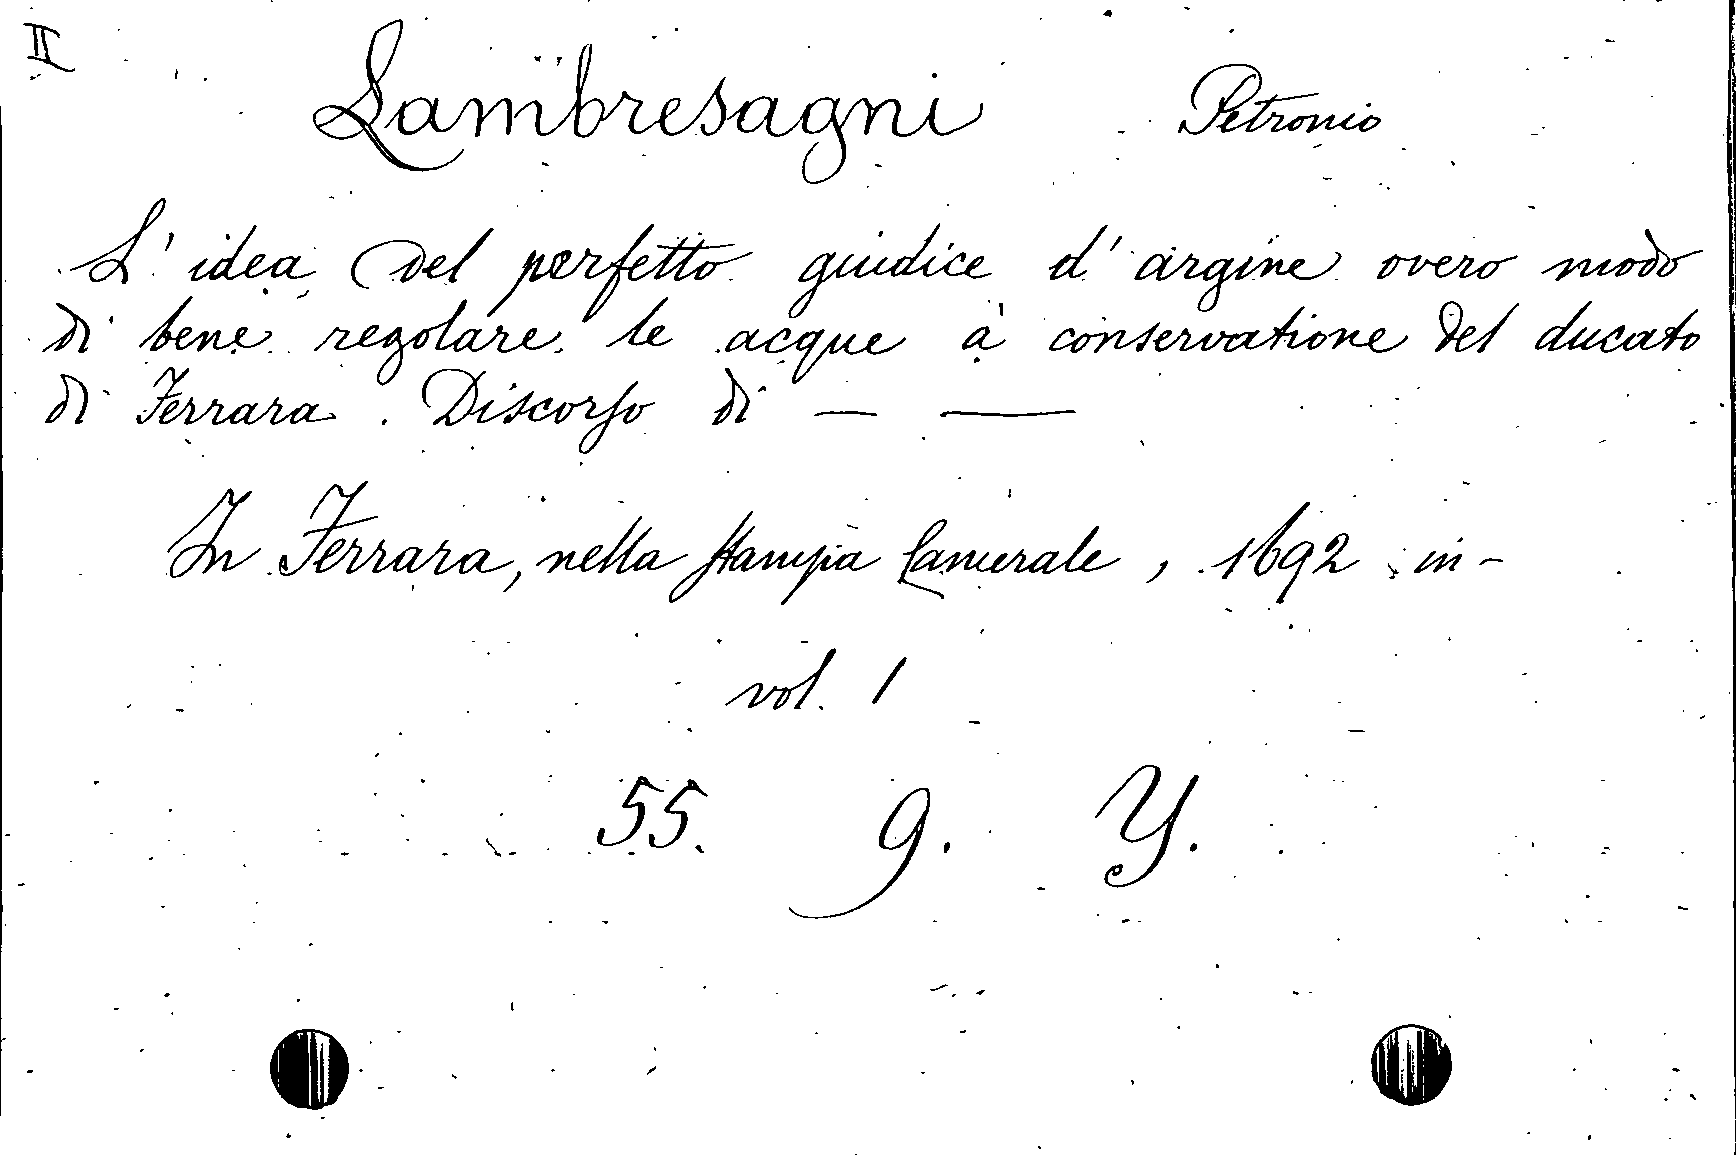 II
Lambresagni Petronio
L'idea del perfetto giudice d'argine overo modo
di bene regolare le acque à conservatione del ducato
di Ferrara. Discorso di — —
In Ferrara, nella stampa Camerale, 1692 in-
vol. 1
55. 9. Y.